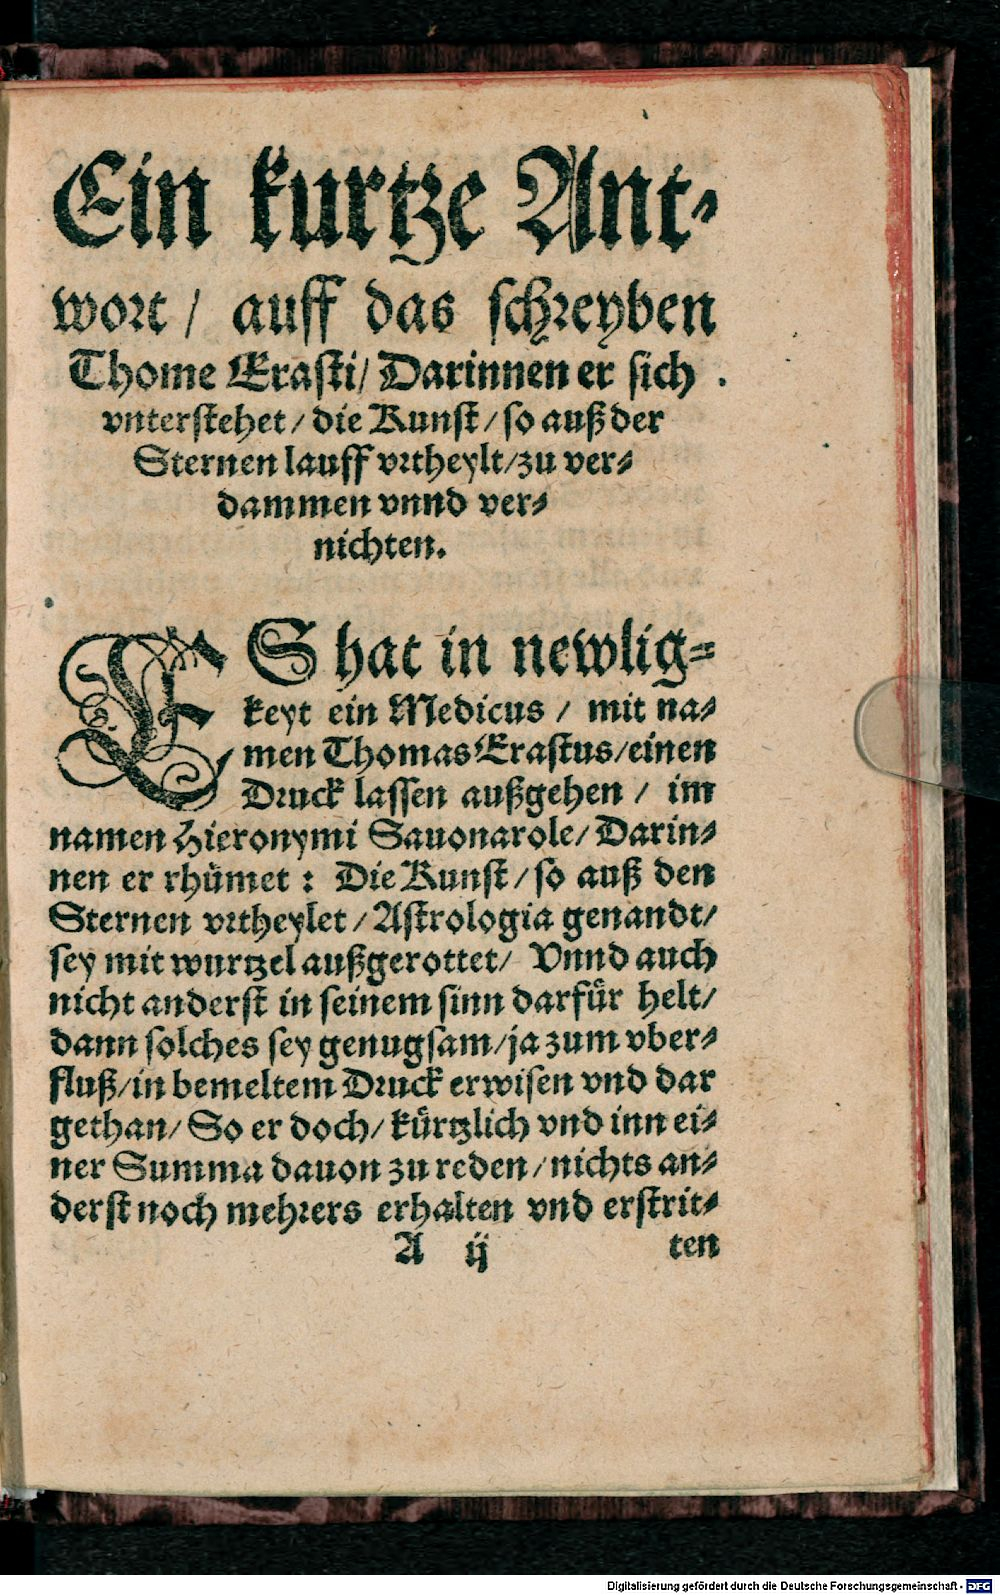 Ein kurtze Ant-
wort / auff das schreyben
Thome Erasti / Darinnen er sich
vnterstehet / die Kunst / so auß der
Sternen lauff vrtheylt / zu ver-
dammen vnnd ver-
nichten.
ES hat in newlig-
keyt ein Medicus / mit na-
men Thomas Erastus / einen
Druck lassen außgehen / im
namen Hieronymi Sauonarole / Darin-
nen er rhümet : Die Kunst / so auß den
Sternen vrtheylet / Astrologia genandt /
sey mit wurtzel außgerottet / Vnnd auch
nicht anderst in seinem sinn darfür helt /
dann solches sey genugsam / ja zum vber-
fluß / in bemeltem Druck erwisen vnd dar
gethan / So er doch / kürtzlich vnd inn ei-
ner Summa dauon zu reden / nichts an-
derst noch mehrers erhalten vnd erstrit-
A ij ten
Digitalisierung gefördert durch die Deutsche Forschungsgemeinschaft - DFG